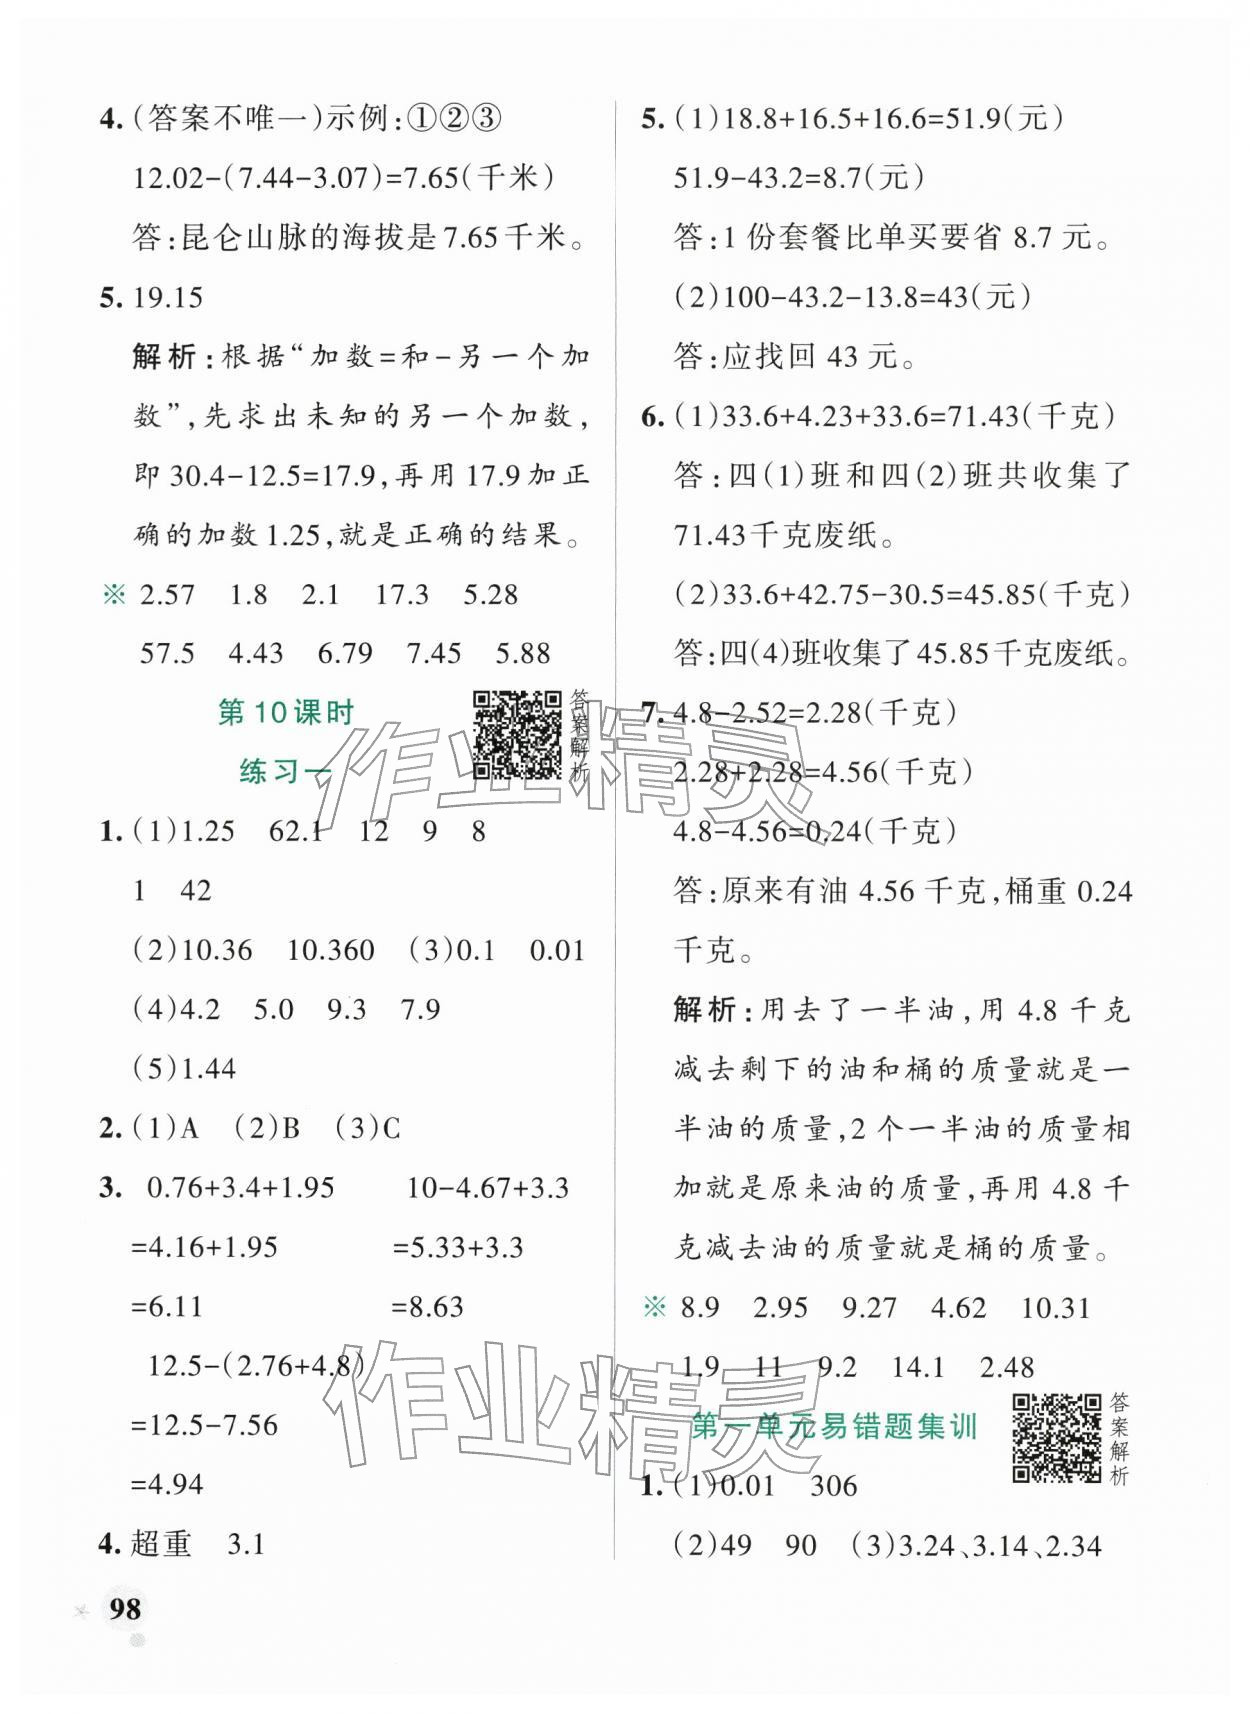 4. (答案不唯一)示例:①②③
12.02-(7.44-3.07)=7.65(千米)
答:昆仑山脉的海拔是7.65千米。
5. 19.15
解析:根据“加数=和-另一个加
数”,先求出未知的另一个加数,
即30.4-12.5=17.9,再用17.9加正
确的加数1.25,就是正确的结果。
※ 2.57 1.8 2.1 17.3 5.28
57.5 4.43 6.79 7.45 5.88
第10课时
练习一
答案解析
1. (1)1.25 62.1 12 9 8
1 42
(2)10.36 10.360 (3)0.1 0.01
(4)4.2 5.0 9.3 7.9
(5)1.44
2. (1)A (2)B (3)C
3. 0.76+3.4+1.95 10-4.67+3.3
=4.16+1.95 =5.33+3.3
=6.11 =8.63
12.5-(2.76+4.8)
=12.5-7.56
=4.94
4. 超重 3.1
98
5. (1)18.8+16.5+16.6=51.9(元)
51.9-43.2=8.7(元)
答:1份套餐比单买要省8.7元。
(2)100-43.2-13.8=43(元)
答:应找回43元。
6. (1)33.6+4.23+33.6=71.43(千克)
答:四(1)班和四(2)班共收集了
71.43千克废纸。
(2)33.6+42.75-30.5=45.85(千克)
答:四(4)班收集了45.85千克废纸。
7. 4.8-2.52=2.28(千克)
2.28+2.28=4.56(千克)
4.8-4.56=0.24(千克)
答:原来有油4.56千克,桶重0.24
千克。
解析:用去了一半油,用4.8千克
减去剩下的油和桶的质量就是一
半油的质量,2个一半油的质量相
加就是原来油的质量,再用4.8千
克减去油的质量就是桶的质量。
※ 8.9 2.95 9.27 4.62 10.31
1.9 11 9.2 14.1 2.48
第一单元易错题集训
答案解析
1. (1)0.01 306
(2)49 90 (3)3.24、3.14、2.34
作业精灵
作业精灵